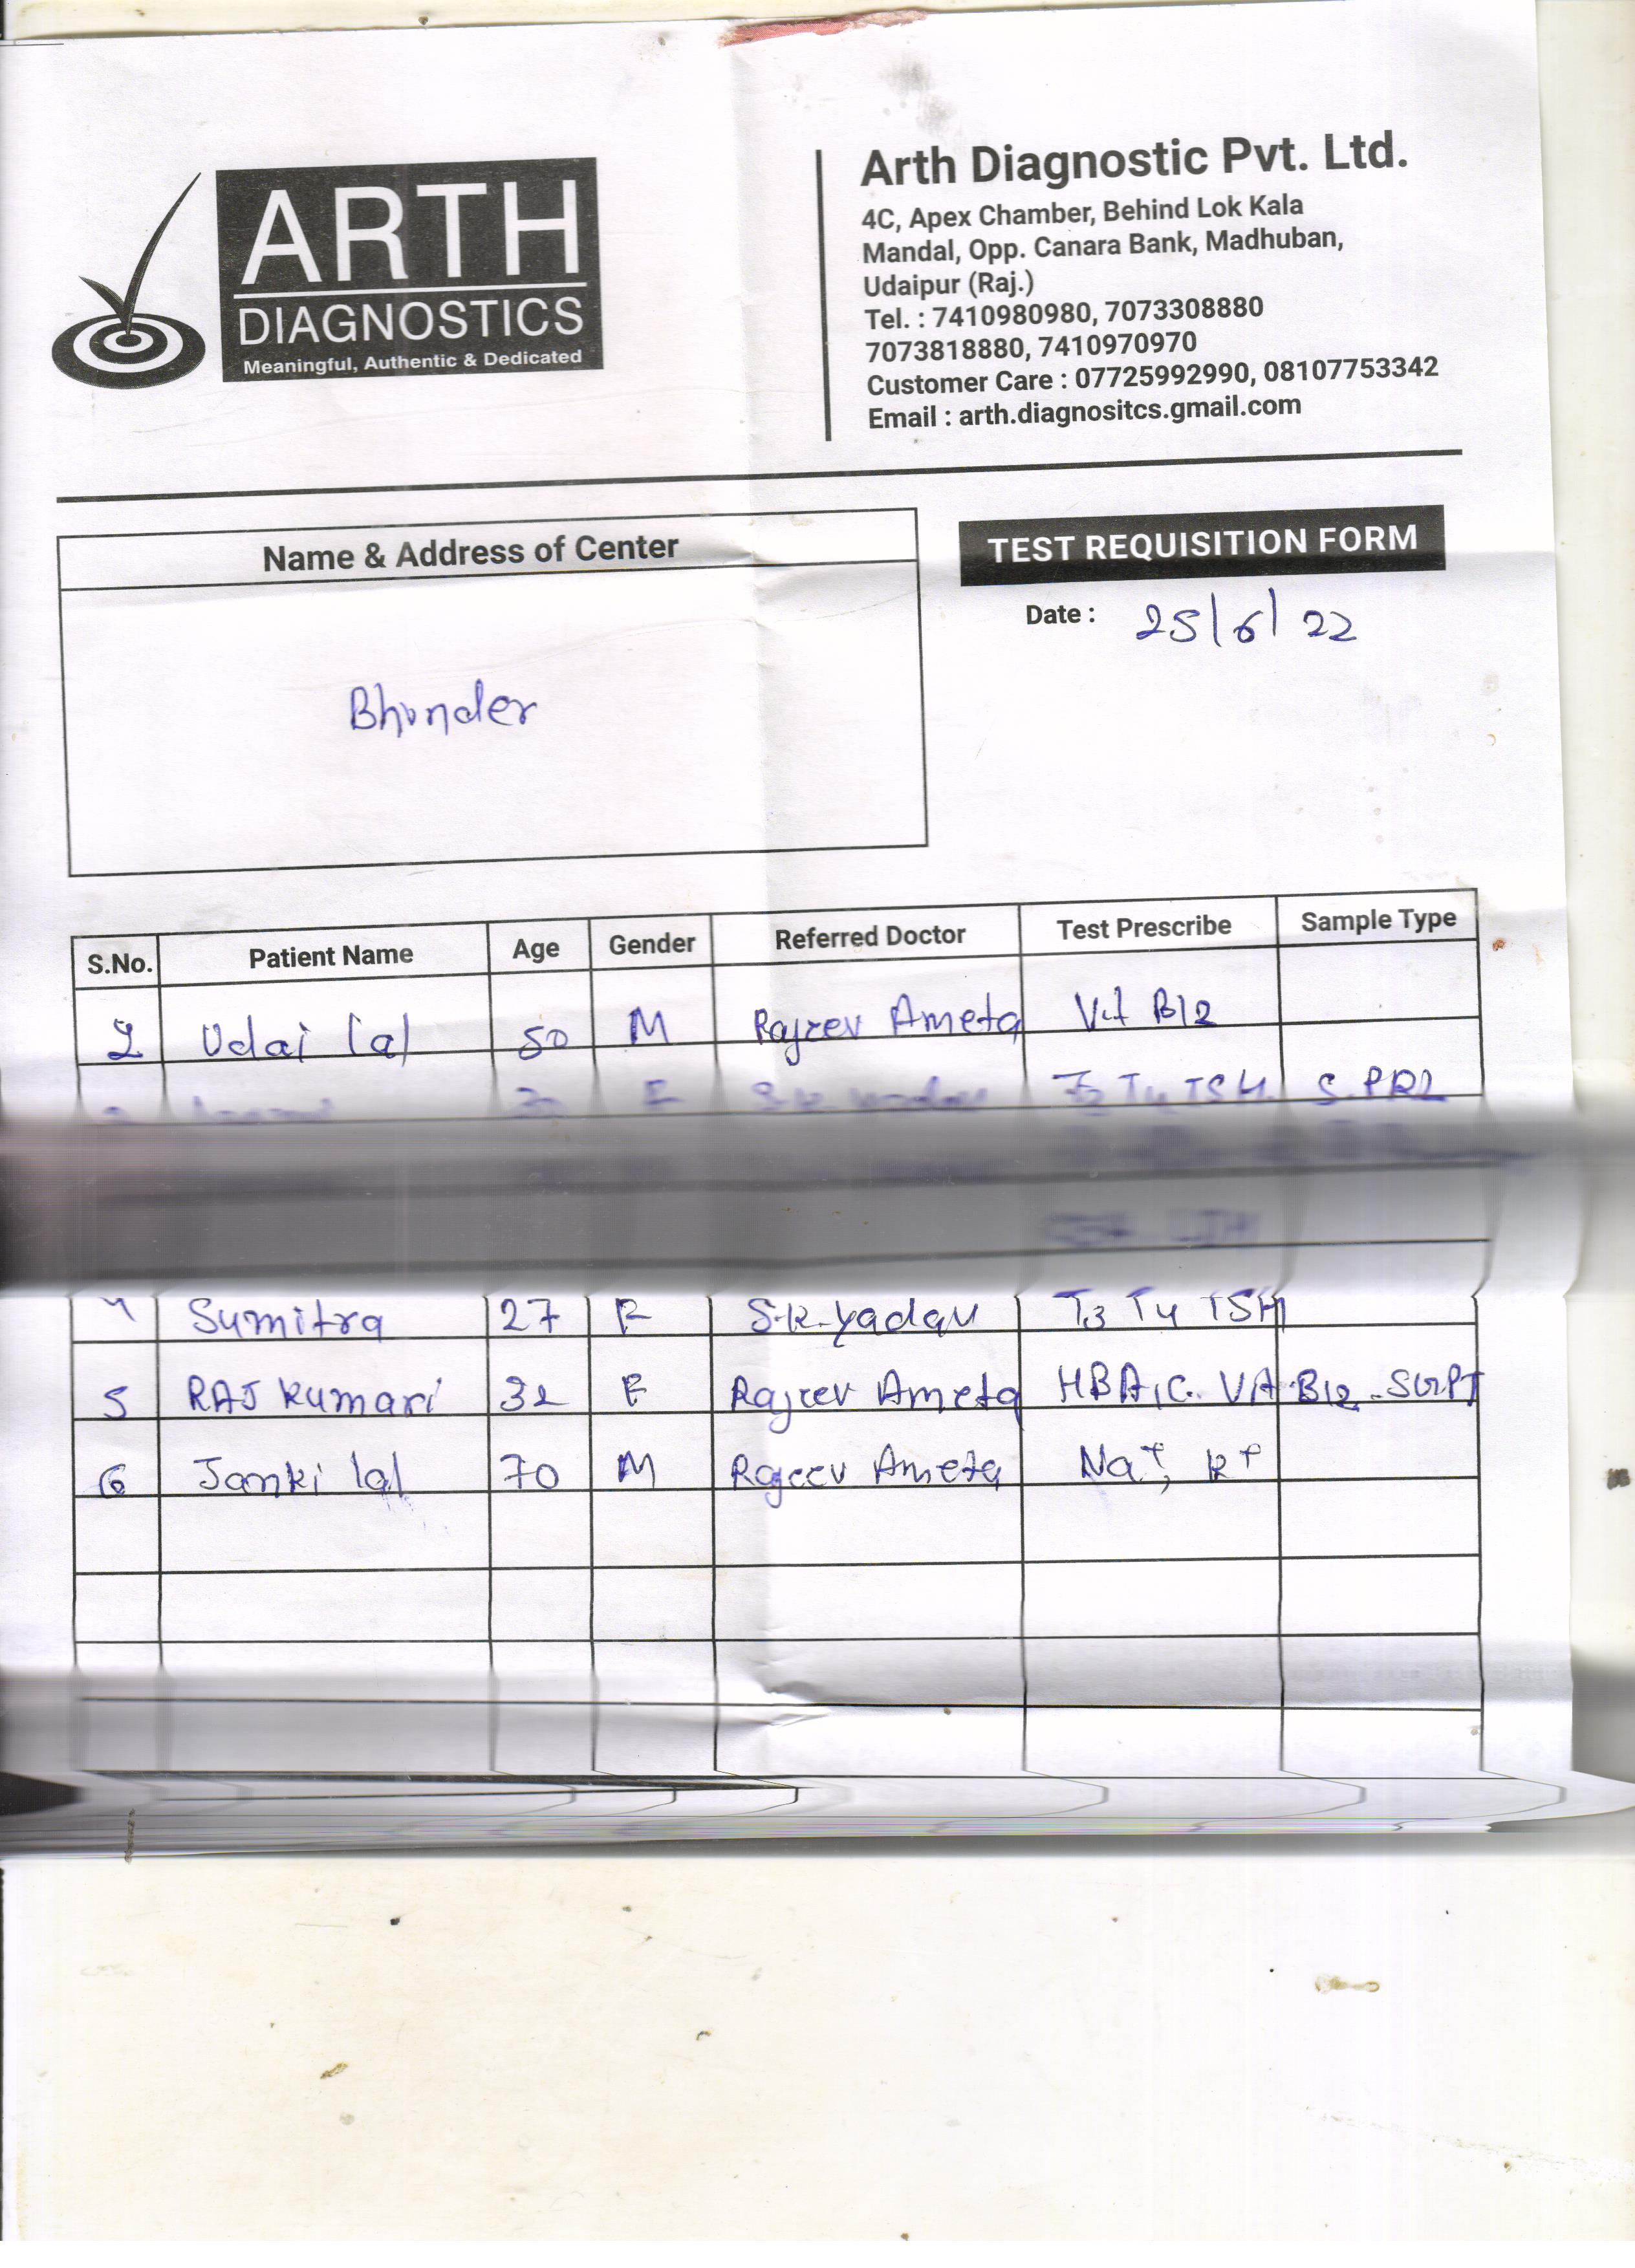 ARTH
DIAGNOSTICS
Meaningful, Authentic & Dedicated
Arth Diagnostic Pvt. Ltd.
4C, Apex Chamber, Behind Lok Kala
Mandal, Opp. Canara Bank, Madhuban,
Udaipur (Raj.)
Tel. : 7410980980, 7073308880
7073818880, 7410970970
Customer Care : 07725992990, 08107753342
Email : arth.diagnositcs.gmail.com
Name & Address of Center
Bhinder
TEST REQUISITION FORM
Date : 25/6/22
S.No. Patient Name Age Gender Referred Doctor Test Prescribe Sample Type
2 Udai lal 50 M Rajeev Ameta Vit B12
F S.K. Yadav T3 T4 TSH. S.PRL
4 Sumitra 27 F S.K. Yadav T3 T4 TSH
5 RAJ Kumari 32 F Rajeev Ameta HBA1C. Vit B12. SGPT
6 Janki lal 70 M Rajeev Ameta Na+, K+